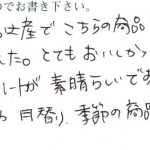 のでお書き下さい。
お土産で こちらの商品
した。とてもおいしか
ートが 素晴らしいでま
り 月替り、季節の商品